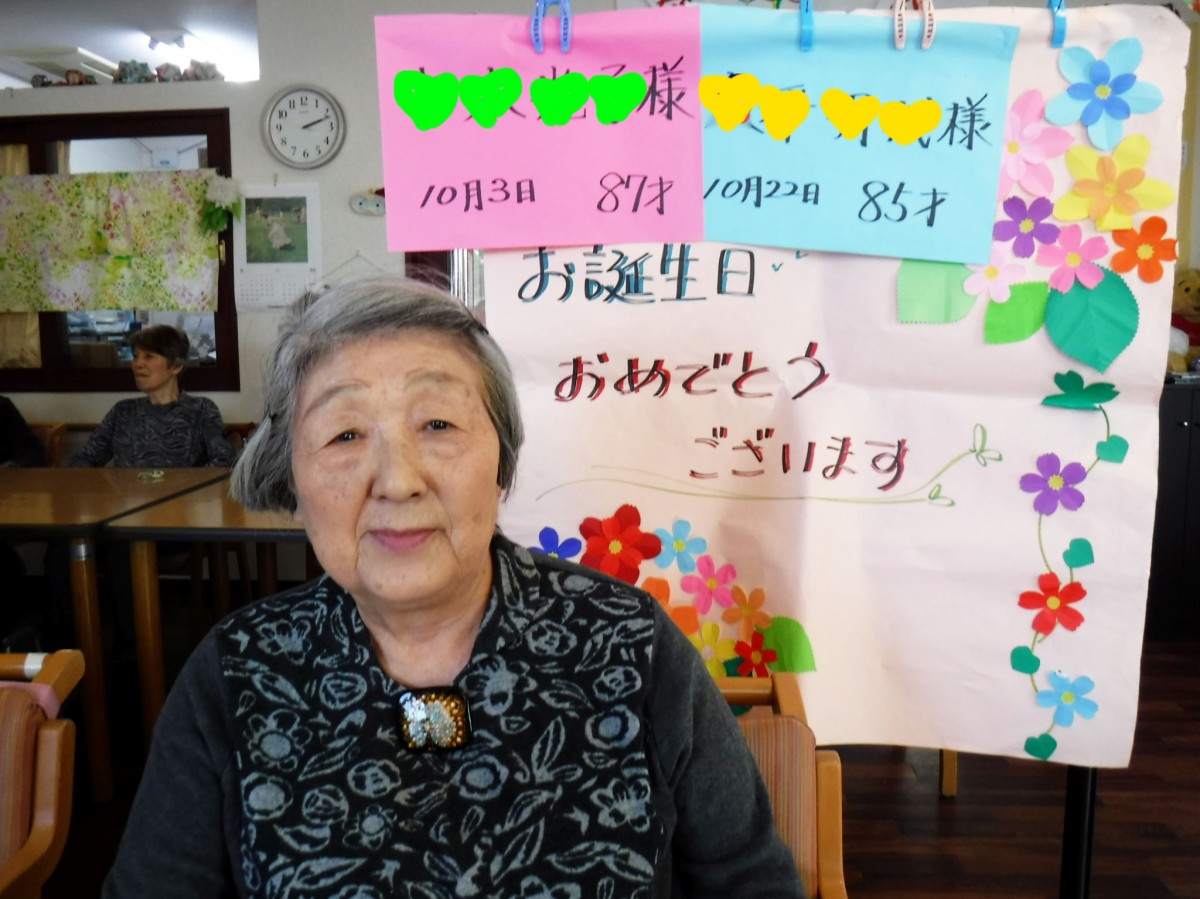 様
10月3日 87才
様
10月22日 85才
お誕生日
おめでとう
ございます